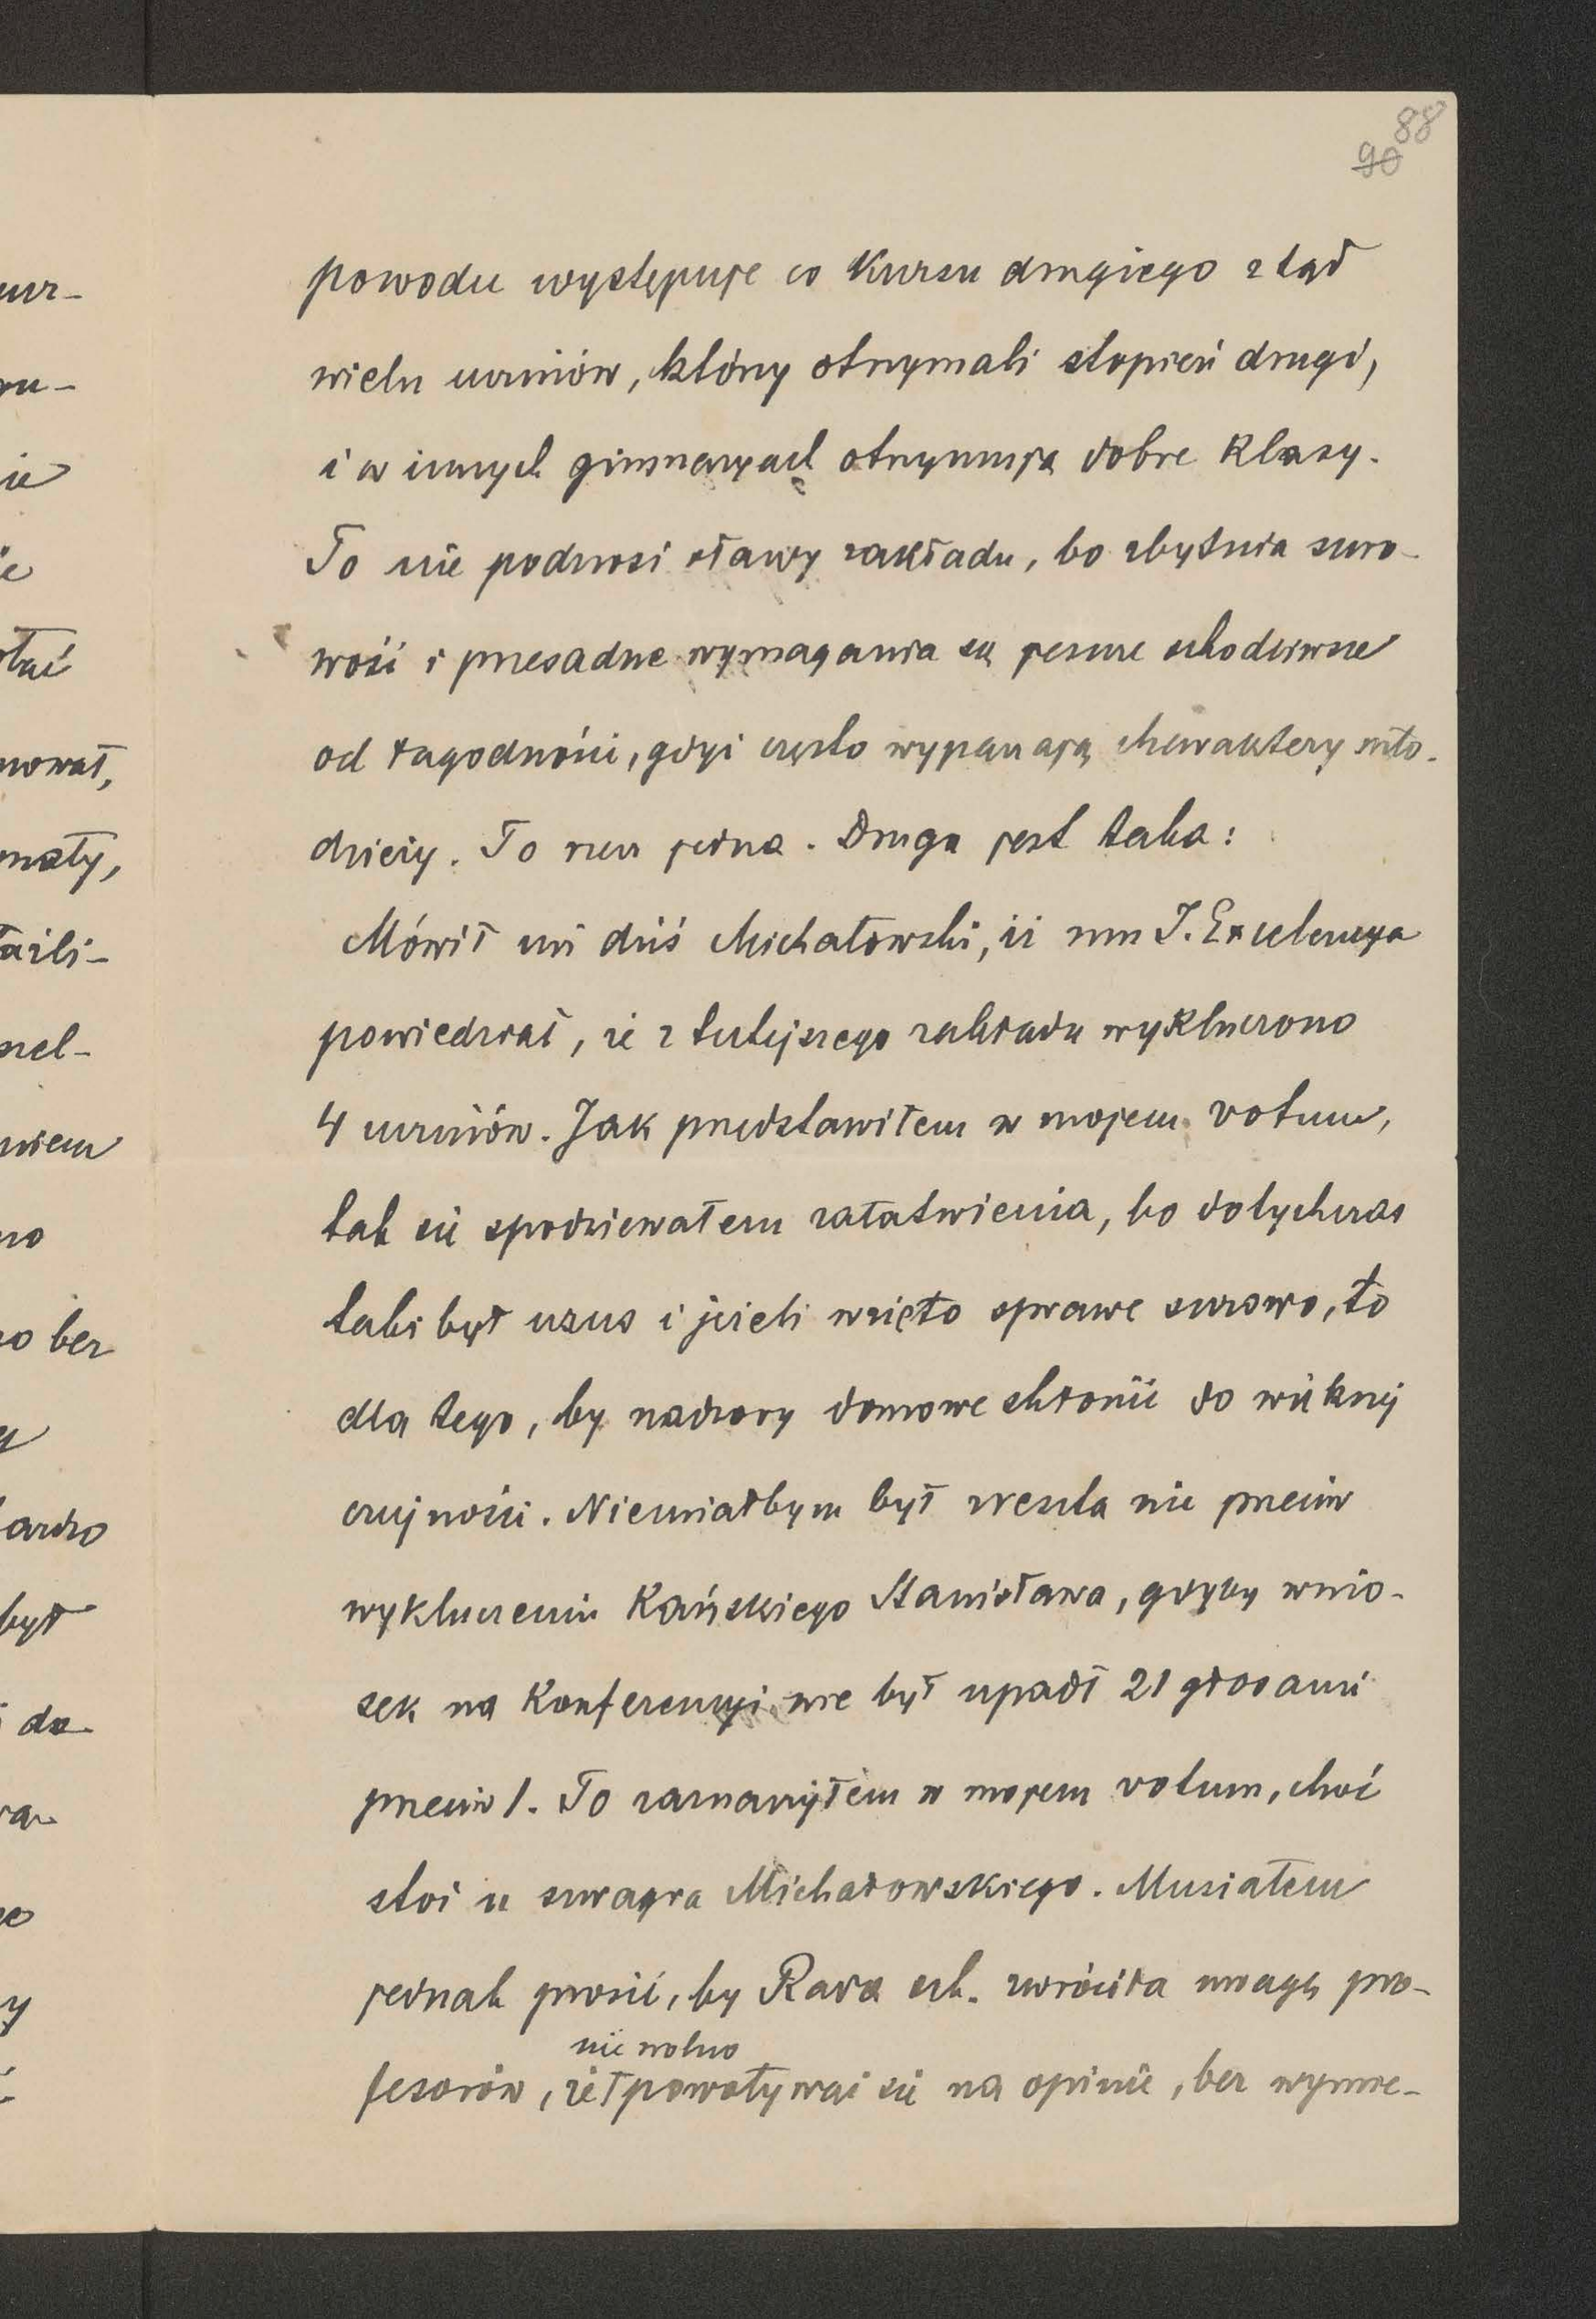 88
90
powodu występuje co kursu drugiego ztąd
wielu uczniów, którzy otrzymali stopień drugi,
i w innych gimnazyach otrzymują dobre klasy.
To nie podnosi sławy zakładu, bo zbytnia suro-
wość i przesadne wymagania są jeszcze szkodliwsze
od łagodności, gdyż często wypaczają charaktery mło-
dzieży. To rzecz jedna. Druga jest taka:
Mówił mi dziś Michałowski, iż mu J. Excelencya
powiedział, że z tutejszego zakładu wykluczono
4 uczniów. Jak przedstawiłem w mojem votum,
tak się spodziewałem załatwienia, bo dotychczas
taki był uzus i jeżeli wzięto sprawę surowo, to
dla tego, by nadzory domowe skłonić do większej
czujności. Niemiałbym był zreszta nic przeciw
wykluczeniu Kańskiego Stanisława, gdyby wnio-
sek na Konferencyi nie był upadł 21 głosami
przeciw 1. To zaznaczyłem w mojem votum, choć
stoi u szwagra Michałowskiego. Musiałem
jednak prosić, by Rada szk. zwróciła uwagę pro-
nie wolno
fesorów, że powoływać się na opinię, bez wymie-
ucz-
ru-
ie
ie
nował,
zel-
niem
no
o bez
ardzo
był
do
ra
y